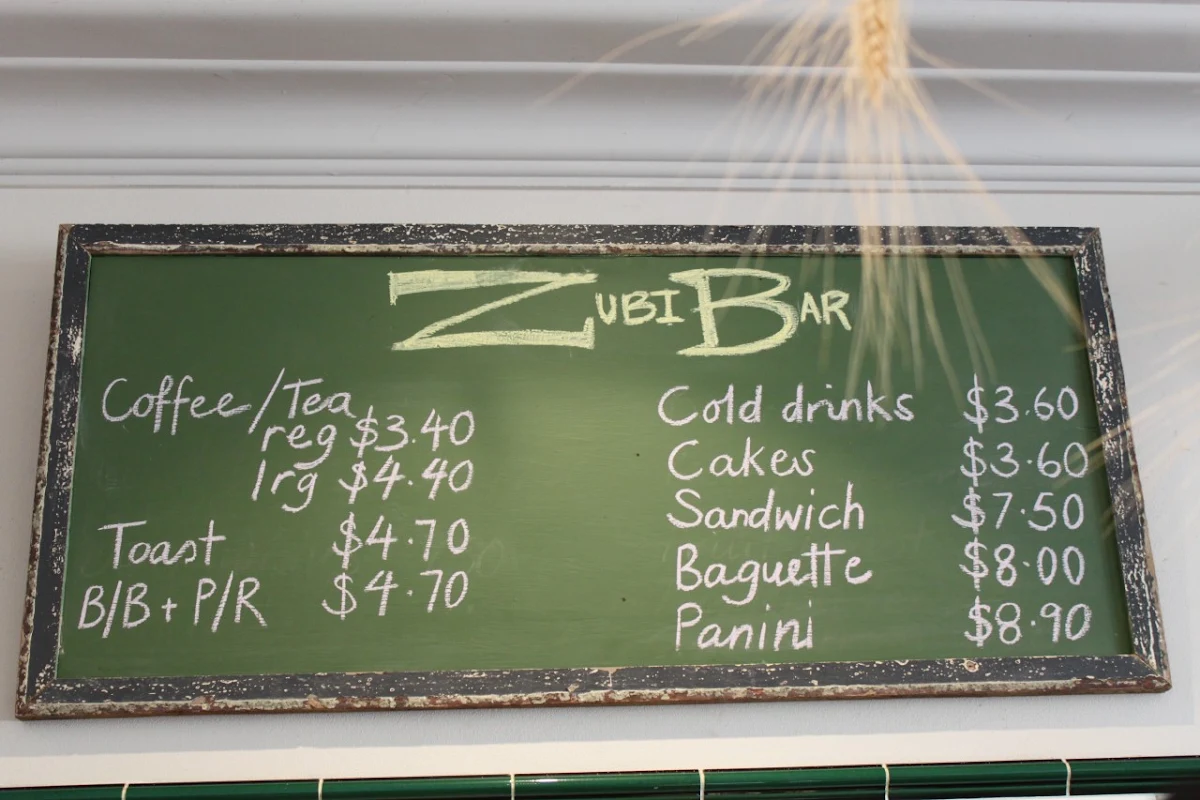 ZUBI BAR
Coffee/Tea
reg $3.40
lrg $4.40
Toast $4.70
B/B + P/R $4.70
Cold drinks $3.60
Cakes $3.60
Sandwich $7.50
Baguette $8.00
Panini $8.90